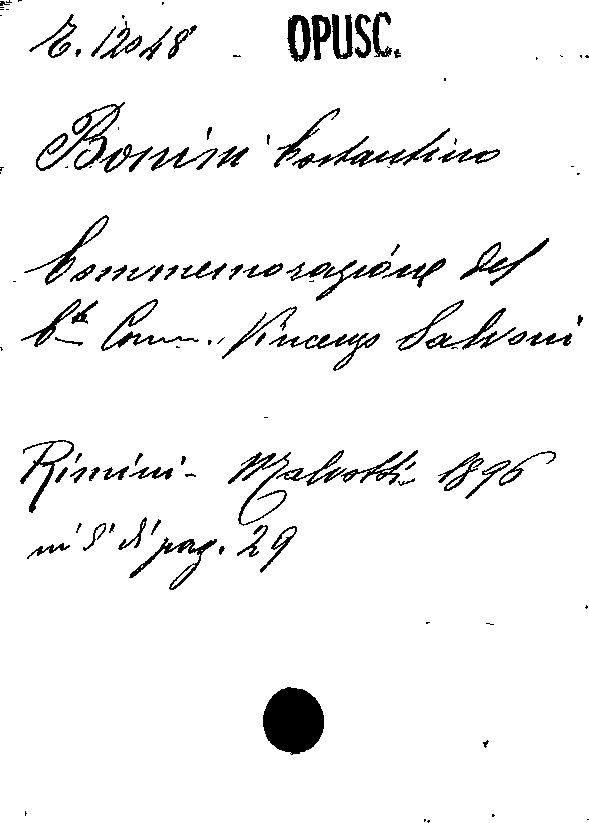 E. 12048 OPUSC.
Bonini Costantino
Commemorazione del
Cte Comm. Vincenzo Salvoni
Rimini - Malvolti 1896
in 8° di pag. 29